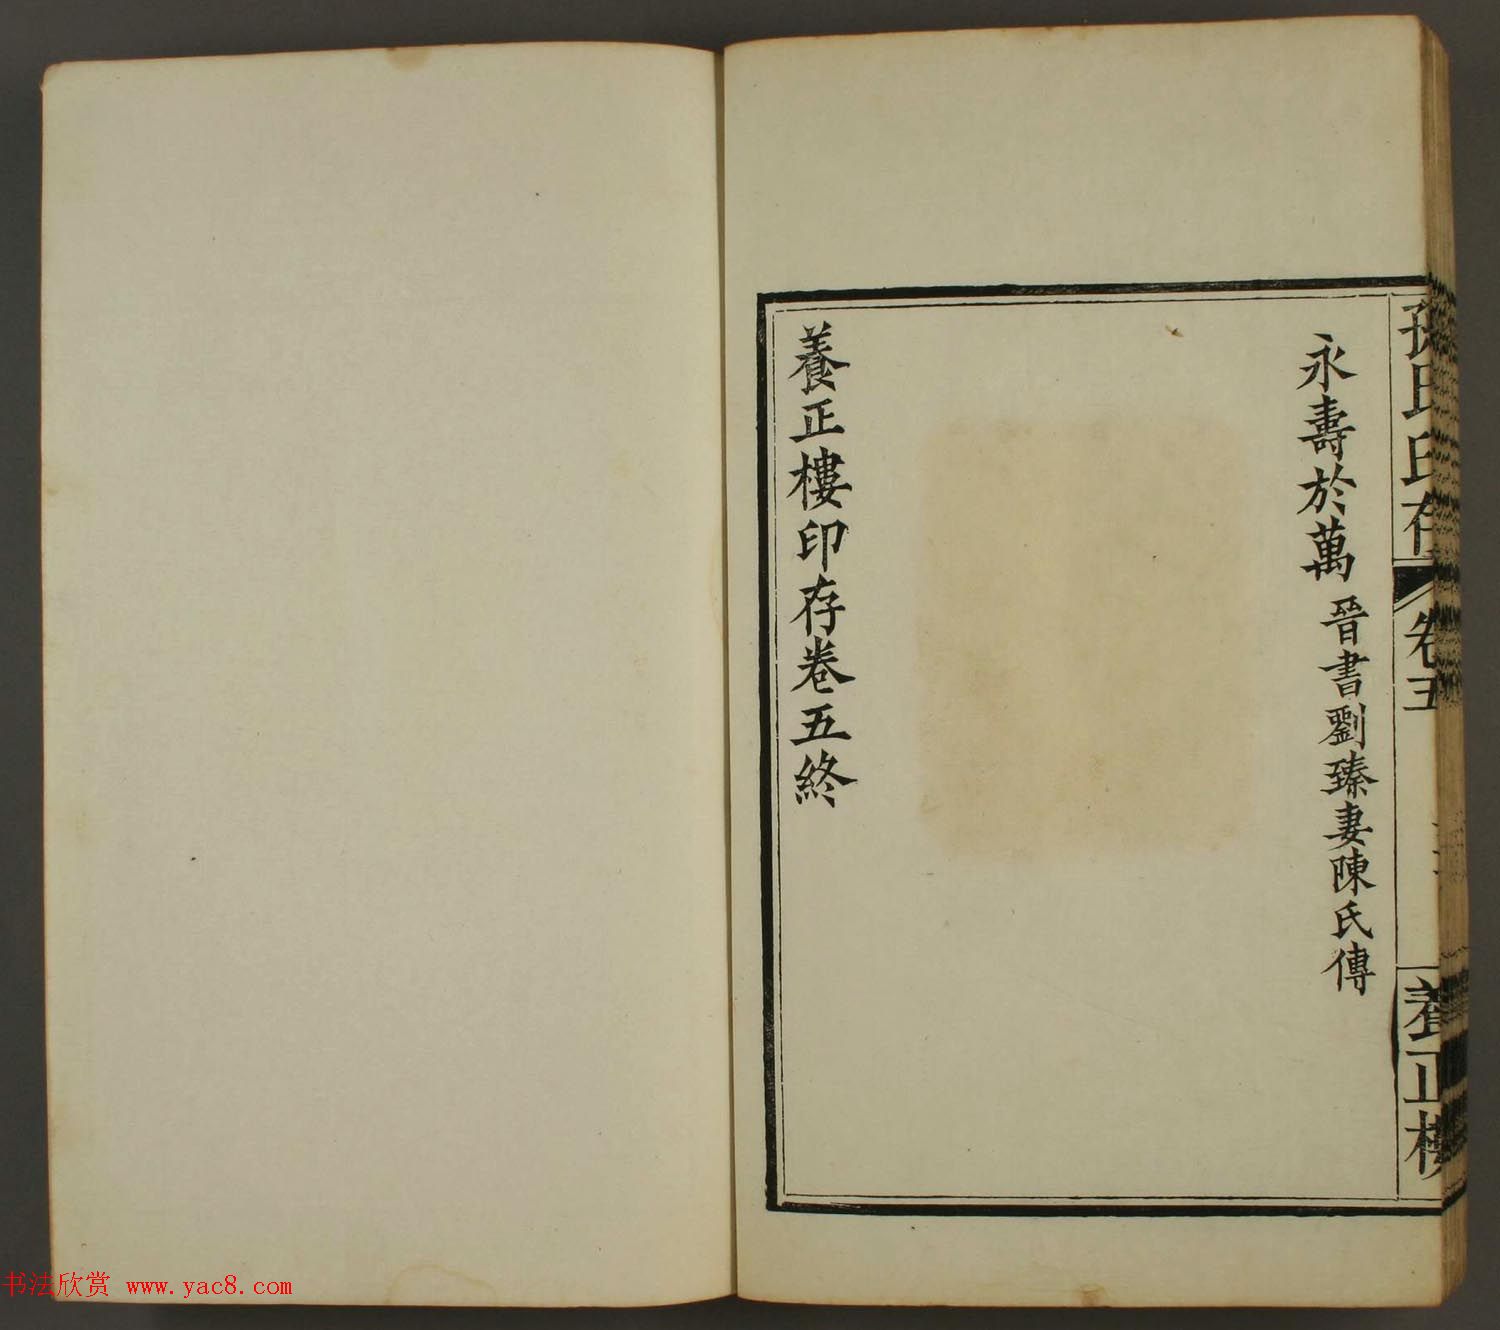 孫氏印存
卷五
養正樓
永壽於萬 晉書劉臻妻陳氏傳
養正樓印存卷五終
书法欣赏 www.yac8.com